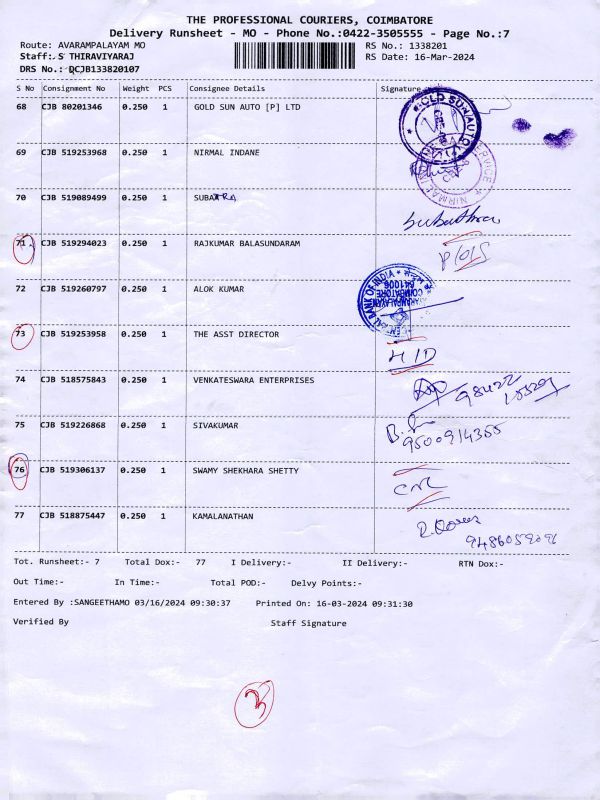 THE PROFESSIONAL COURIERS, COIMBATORE
Delivery Runsheet - MO - Phone No.:0422-3505555 - Page No.:7
Route: AVARAMPALAYAM MO RS No.: 1338201
Staff:.S THIRAVIYARAJ RS Date: 16-Mar-2024
DRS No.: DCJB133820107
S No Consignment No Weight PCS Consignee Details Signature
68 CJB 80201346 0.250 1 GOLD SUN AUTO [P] LTD
69 CJB 519253968 0.250 1 NIRMAL INDANE
70 CJB 519089499 0.250 1 SUBATRA
Subathra
71 CJB 519294023 0.250 1 RAJKUMAR BALASUNDARAM
72 CJB 519260797 0.250 1 ALOK KUMAR
73 CJB 519253958 0.250 1 THE ASST DIRECTOR
H/D
74 CJB 518575843 0.250 1 VENKATESWARA ENTERPRISES
98422
75 CJB 519226868 0.250 1 SIVAKUMAR
9500914355
76 CJB 519306137 0.250 1 SWAMY SHEKHARA SHETTY
77 CJB 518875447 0.250 1 KAMALANATHAN
Tot. Runsheet:- 7 Total Dox:- 77 I Delivery:- II Delivery:- RTN Dox:-
Out Time:- In Time:- Total POD:- Delvy Points:-
Entered By :SANGEETHAMO 03/16/2024 09:30:37 Printed On: 16-03-2024 09:31:30
Verified By Staff Signature
3